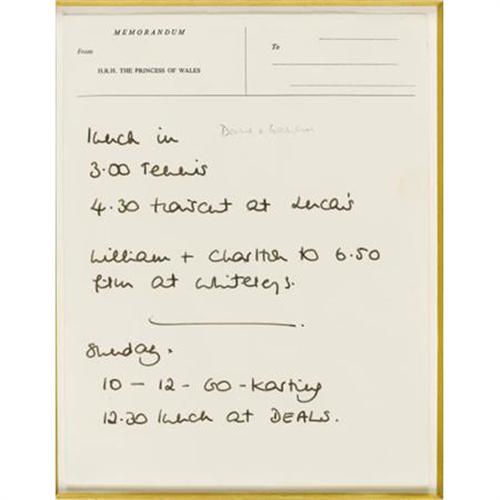 MEMORANDUM
From
To
H.R.H. THE PRINCESS OF WALES
lunch in
3.00 Tennis
4.30 haircut at Luca's
William + Charlton to 6.50
film at whiteleys.
Sunday.
10 - 12 - GO-Karting
12.30 lunch at DEALS.